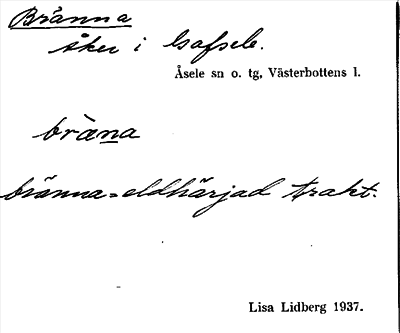 Bränna
åker i Gafsele.
Åsele sn o. tg, Västerbottens l.
bràna
bränna=eldhärjad trakt.
Lisa Lidberg 1937.